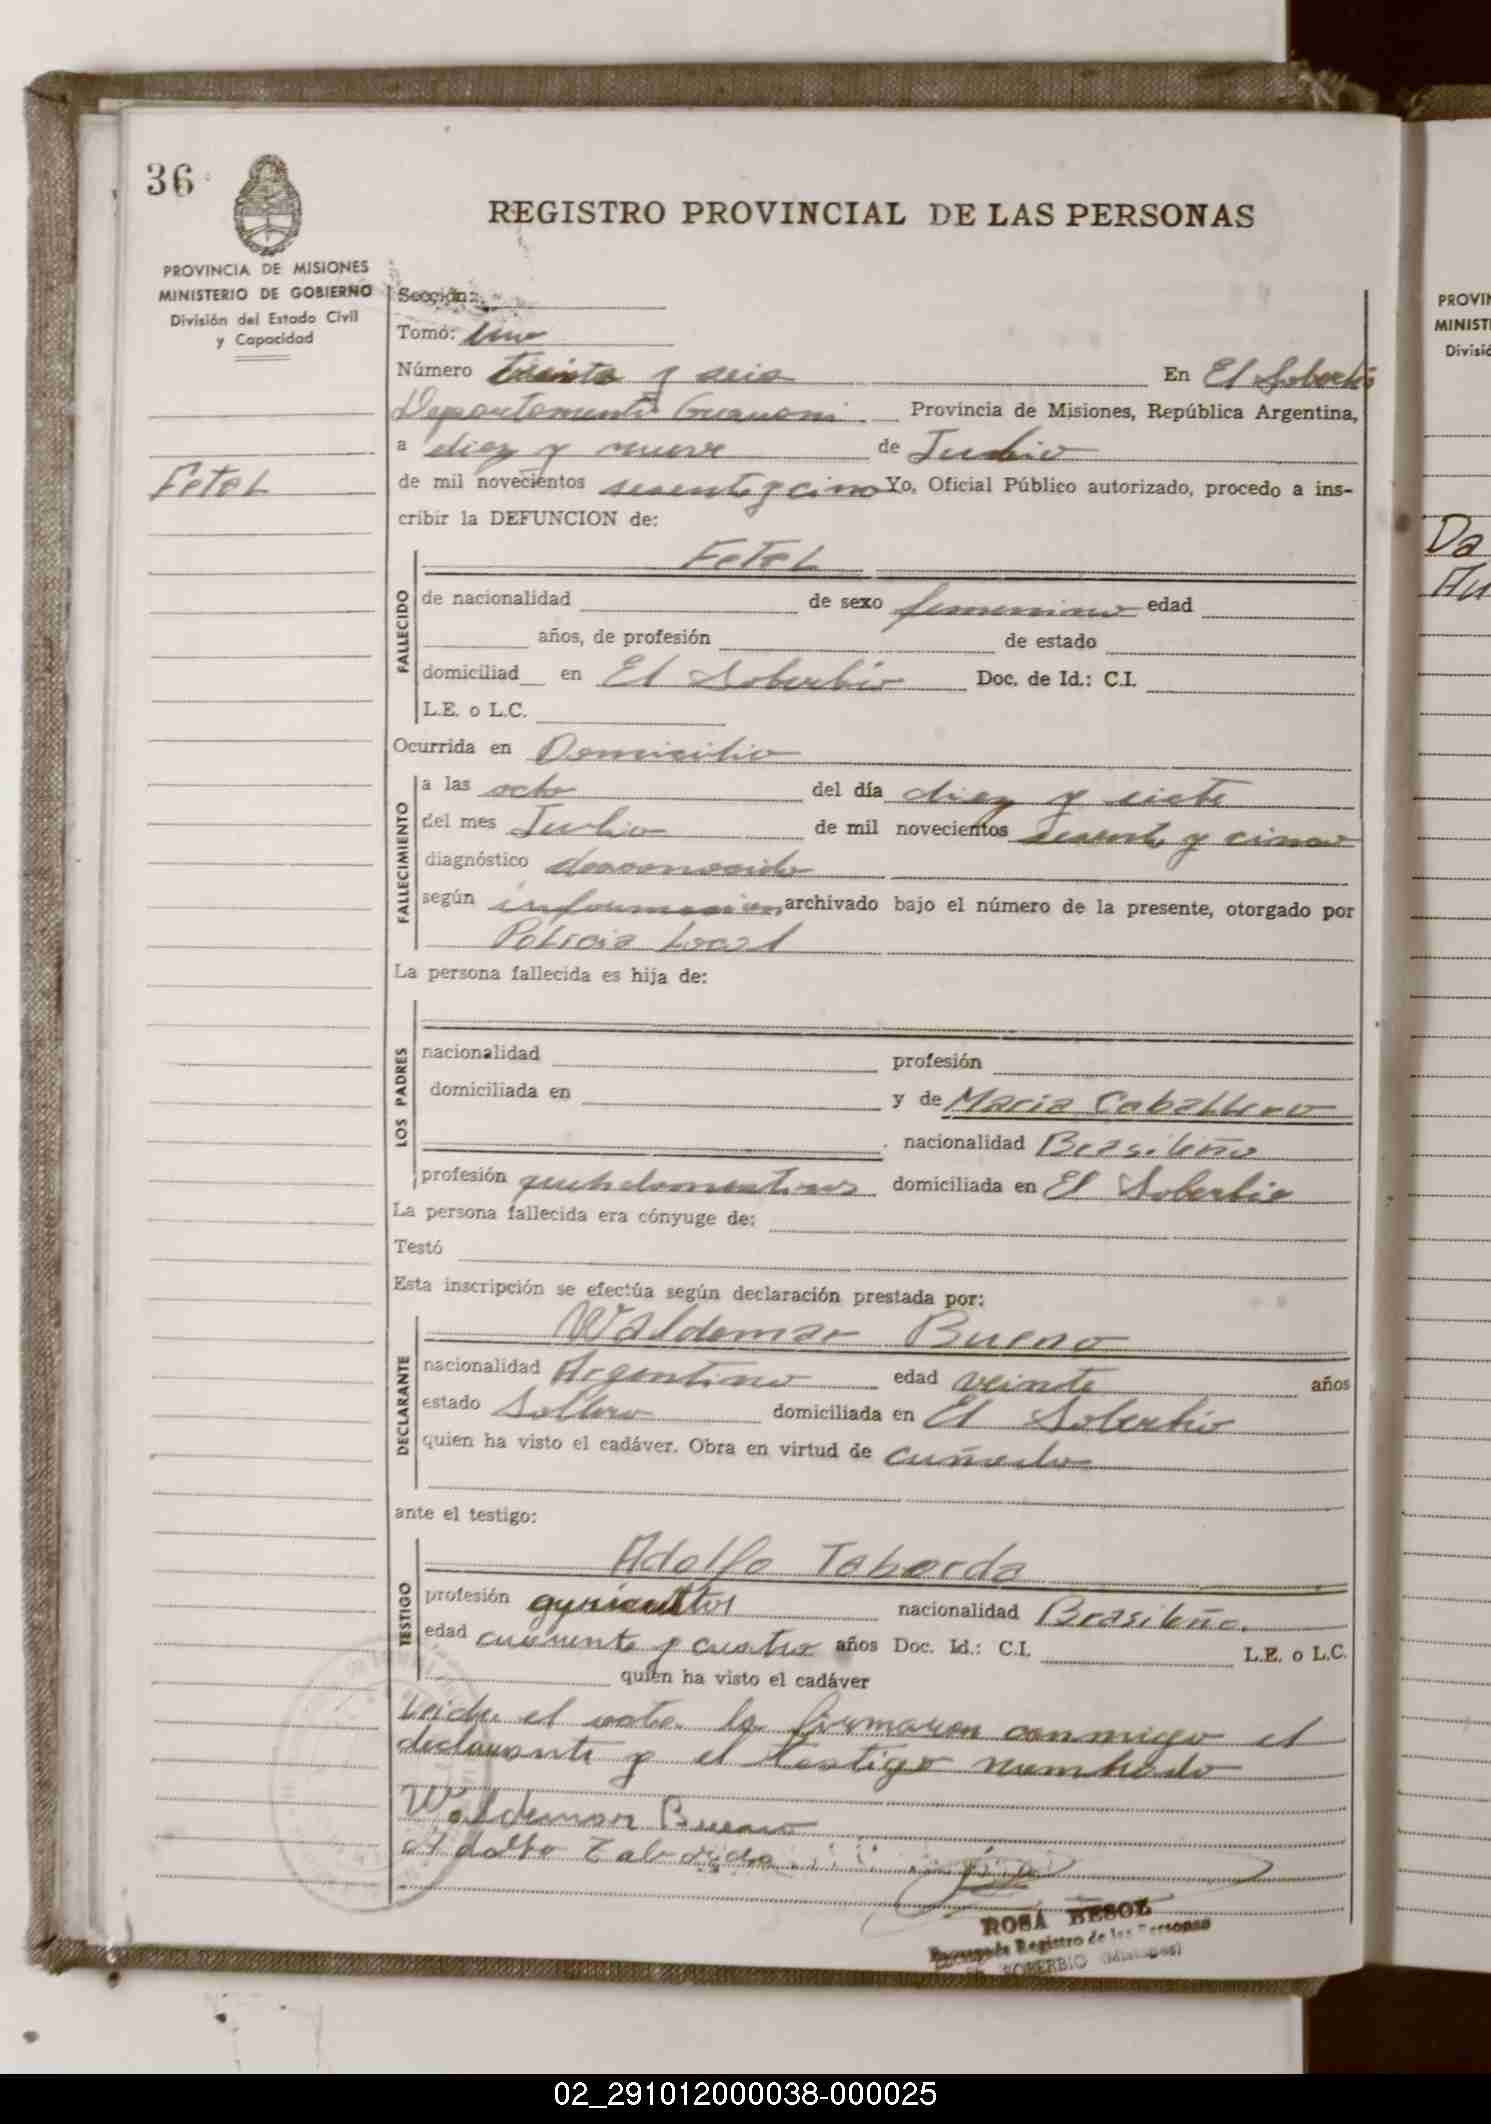 36
PROVINCIA DE MISIONES
MINISTERIO DE GOBIERNO
División del Estado Civil
y Capacidad
REGISTRO PROVINCIAL DE LAS PERSONAS
Sección:
Tomo: Uno
Número treinta y seis En El Soberbio
Departamento Guarani Provincia de Misiones, República Argentina,
a diez y nueve de Julio
Fetal
de mil novecientos sesenta y cinco Yo, Oficial Público autorizado, procedo a ins-
cribir la DEFUNCION de:
Fetal
FALLECIDO
de nacionalidad de sexo femenino edad
años, de profesión de estado
domiciliad en El Soberbio Doc. de Id.: C.I.
L.E. o L.C.
Ocurrida en Domicilio
FALLECIMIENTO
a las ocho del día diez y siete
del mes Julio de mil novecientos sesenta y cinco
diagnóstico desconocido
según informacion archivado bajo el número de la presente, otorgado por
Policia Local
La persona fallecida es hija de:
LOS PADRES
nacionalidad profesión
domiciliada en y de Maria Caballero
nacionalidad Brasileña
profesión domiciliada en El Soberbio
La persona fallecida era cónyuge de:
Testó
Esta inscripción se efectúa según declaración prestada por:
DECLARANTE
Waldemar Bueno
nacionalidad Argentino edad veinte años
estado Soltero domiciliada en El Soberbio
quien ha visto el cadáver. Obra en virtud de cuñado
ante el testigo:
TESTIGO
Adolfo Taborda
profesión agricultor nacionalidad Brasileña.
edad cuarenta y cuatro años Doc. Id.: C.I. L.E. o L.C.
quien ha visto el cadáver
Leida el acta la firmaron conmigo el
declarante y el testigo nombrado
Waldemar Bueno
Adolfo Taborda
ROSA BESOL
Encargada Registro de las Personas
EL SOBERBIO (Misiones)
PROVIN
MINIST
Divisió
Da
Au
02_291012000038-000025